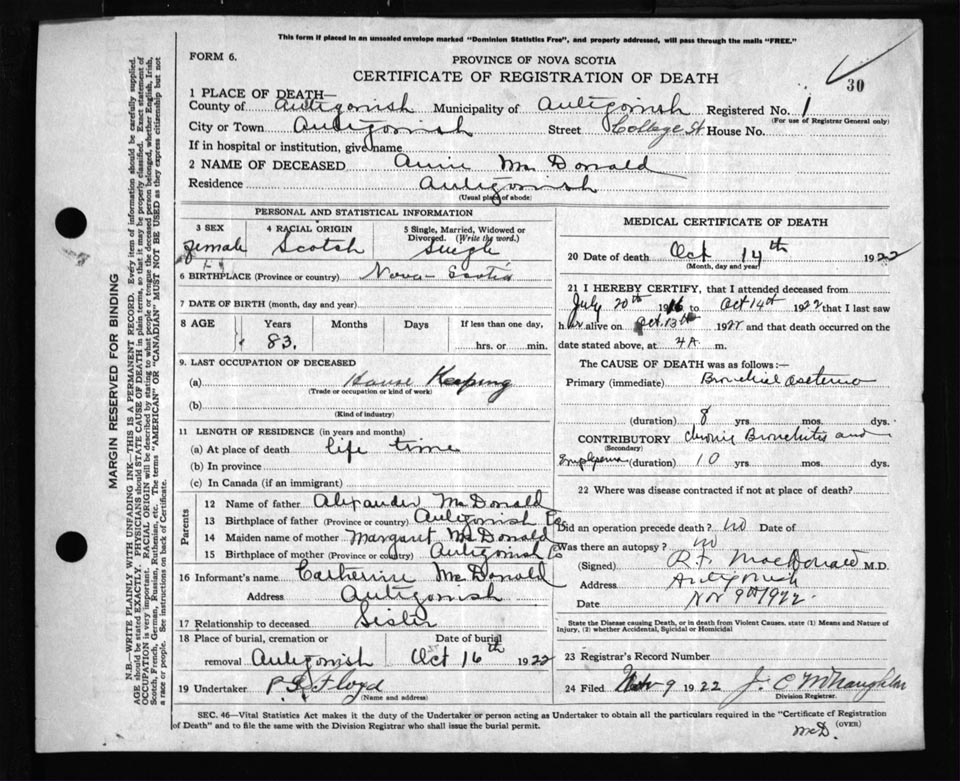 This form if placed in an unsealed envelope marked "Dominion Statistics Free", and properly addressed, will pass through the mails "FREE."
FORM 6.
PROVINCE OF NOVA SCOTIA
CERTIFICATE OF REGISTRATION OF DEATH
30
1 PLACE OF DEATH—
County of Antigonish Municipality of Antigonish Registered No. 1
(For use of Registrar General only)
City or Town Antigonish Street College St. House No.
If in hospital or institution, give name
2 NAME OF DECEASED Annie McDonald
Residence Antigonish
(Usual place of abode)
PERSONAL AND STATISTICAL INFORMATION
3 SEX 4 RACIAL ORIGIN 5 Single, Married, Widowed or Divorced. (Write the word.)
female Scotch Single
6 BIRTHPLACE (Province or country) Nova Scotia
7 DATE OF BIRTH (month, day and year)
8 AGE Years Months Days If less than one day,
83. hrs. or min.
9. LAST OCCUPATION OF DECEASED
(a) House Keeping
(Trade or occupation or kind of work)
(b)
(Kind of industry)
11 LENGTH OF RESIDENCE (in years and months)
(a) At place of death life time
(b) In province
(c) In Canada (if an immigrant)
Parents
12 Name of father Alexander McDonald
13 Birthplace of father (Province or country) Antigonish Co
14 Maiden name of mother Margaret McDonald
15 Birthplace of mother (Province or country) Antigonish Co
16 Informant's name Catherine McDonald
Address Antigonish
17 Relationship to deceased Sister
18 Place of burial, cremation or Date of burial
removal Antigonish Oct 16th 1922
19 Undertaker Floyd
(Name and address)
MEDICAL CERTIFICATE OF DEATH
20 Date of death Oct 14th 1922
(Month, day and year)
21 I HEREBY CERTIFY, that I attended deceased from
July 20th 1916 to Oct 14th 1922 that I last saw
her alive on Oct. 13th 1922 and that death occurred on the
date stated above, at 4 A. m.
The CAUSE OF DEATH was as follows:—
Primary (immediate) Bronchial
(duration) 8 yrs. mos. dys.
CONTRIBUTORY chronic Bronchitis and
(Secondary)
(duration) 10 yrs. mos. dys.
22 Where was disease contracted if not at place of death?
Did an operation precede death? no Date of
Was there an autopsy? no
(Signed) R.F. MacDonald M.D.
Address Antigonish
Date Nov 9th 1922.
State the Disease causing Death, or in death from Violent Causes, state (1) Means and Nature of
Injury, (2) whether Accidental, Suicidal or Homicidal
23 Registrar's Record Number
24 Filed Nov 9 1922 J. C McNaughton
Division Registrar.
SEC. 46—Vital Statistics Act makes it the duty of the Undertaker or person acting as Undertaker to obtain all the particulars required in the "Certificate of Registration
of Death" and to file the same with the Division Registrar who shall issue the burial permit.
(OVER)
McD.
MARGIN RESERVED FOR BINDING
N.B.—WRITE PLAINLY WITH UNFADING INK—THIS IS A PERMANENT RECORD. Every item of information should be carefully supplied.
AGE should be stated EXACTLY. PHYSICIANS should STATE CAUSE OF DEATH in plain terms, so that it may be properly classified. Exact statement of
OCCUPATION is very important. RACIAL ORIGIN will be described by stating to what people or tongue the deceased person belonged, whether English, Irish,
Scotch, French, German, Russian, Ruthenian, etc. The terms "AMERICAN" or "CANADIAN" MUST NOT BE USED as they express citizenship but not
a race or people. See instructions on back of Certificate.